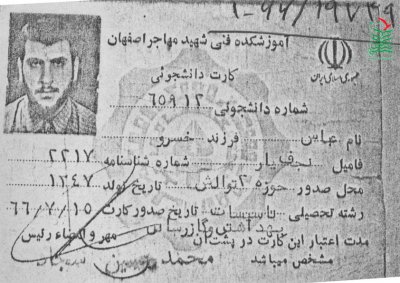 ۱-۶۶/۱۹۷۳۹
آموزشکده فنی شهید مهاجر اصفهان
جمهوری اسلامی ایران
کارت دانشجوئی
شماره دانشجوئی ۶۵۹۱۲
نام عباس فرزند خسرو
فامیل نجف یار شماره شناسنامه ۲۲۱۷
محل صدور حوزه ۲ توالش تاریخ تولد ۱۳۴۷
رشته تحصیلی تاسیسات تاریخ صدور کارت ۶۶/۷/۱۵
بهداشتی وگازرسانی
مدت اعتبار این کارت در پشت آن مهر و امضاء رئیس
مشخص میباشد